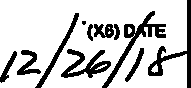 (X6) DATE
12/26/18